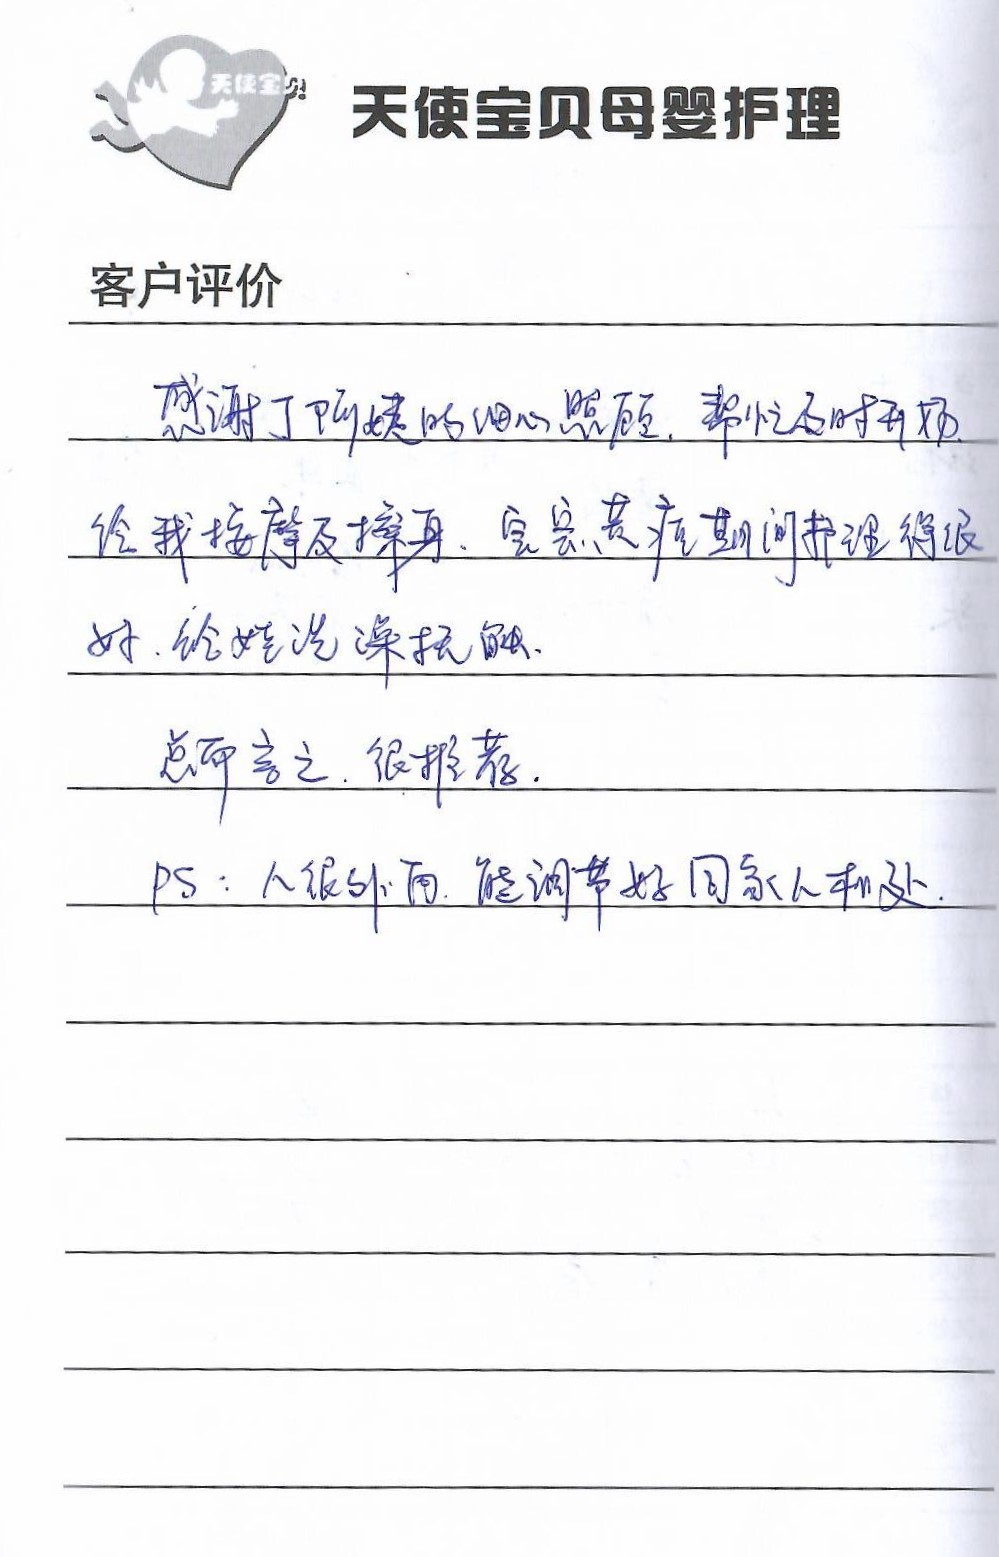 天使宝贝
天使宝贝母婴护理
客户评价
感谢丁阿姨的细心照顾、帮忙及时开奶、
给我按摩及擦身、宝宝黄疸期间护理得很
好、给娃洗澡抚触、
总而言之、很推荐.
PS：人很外向、能调节好同家人相处.